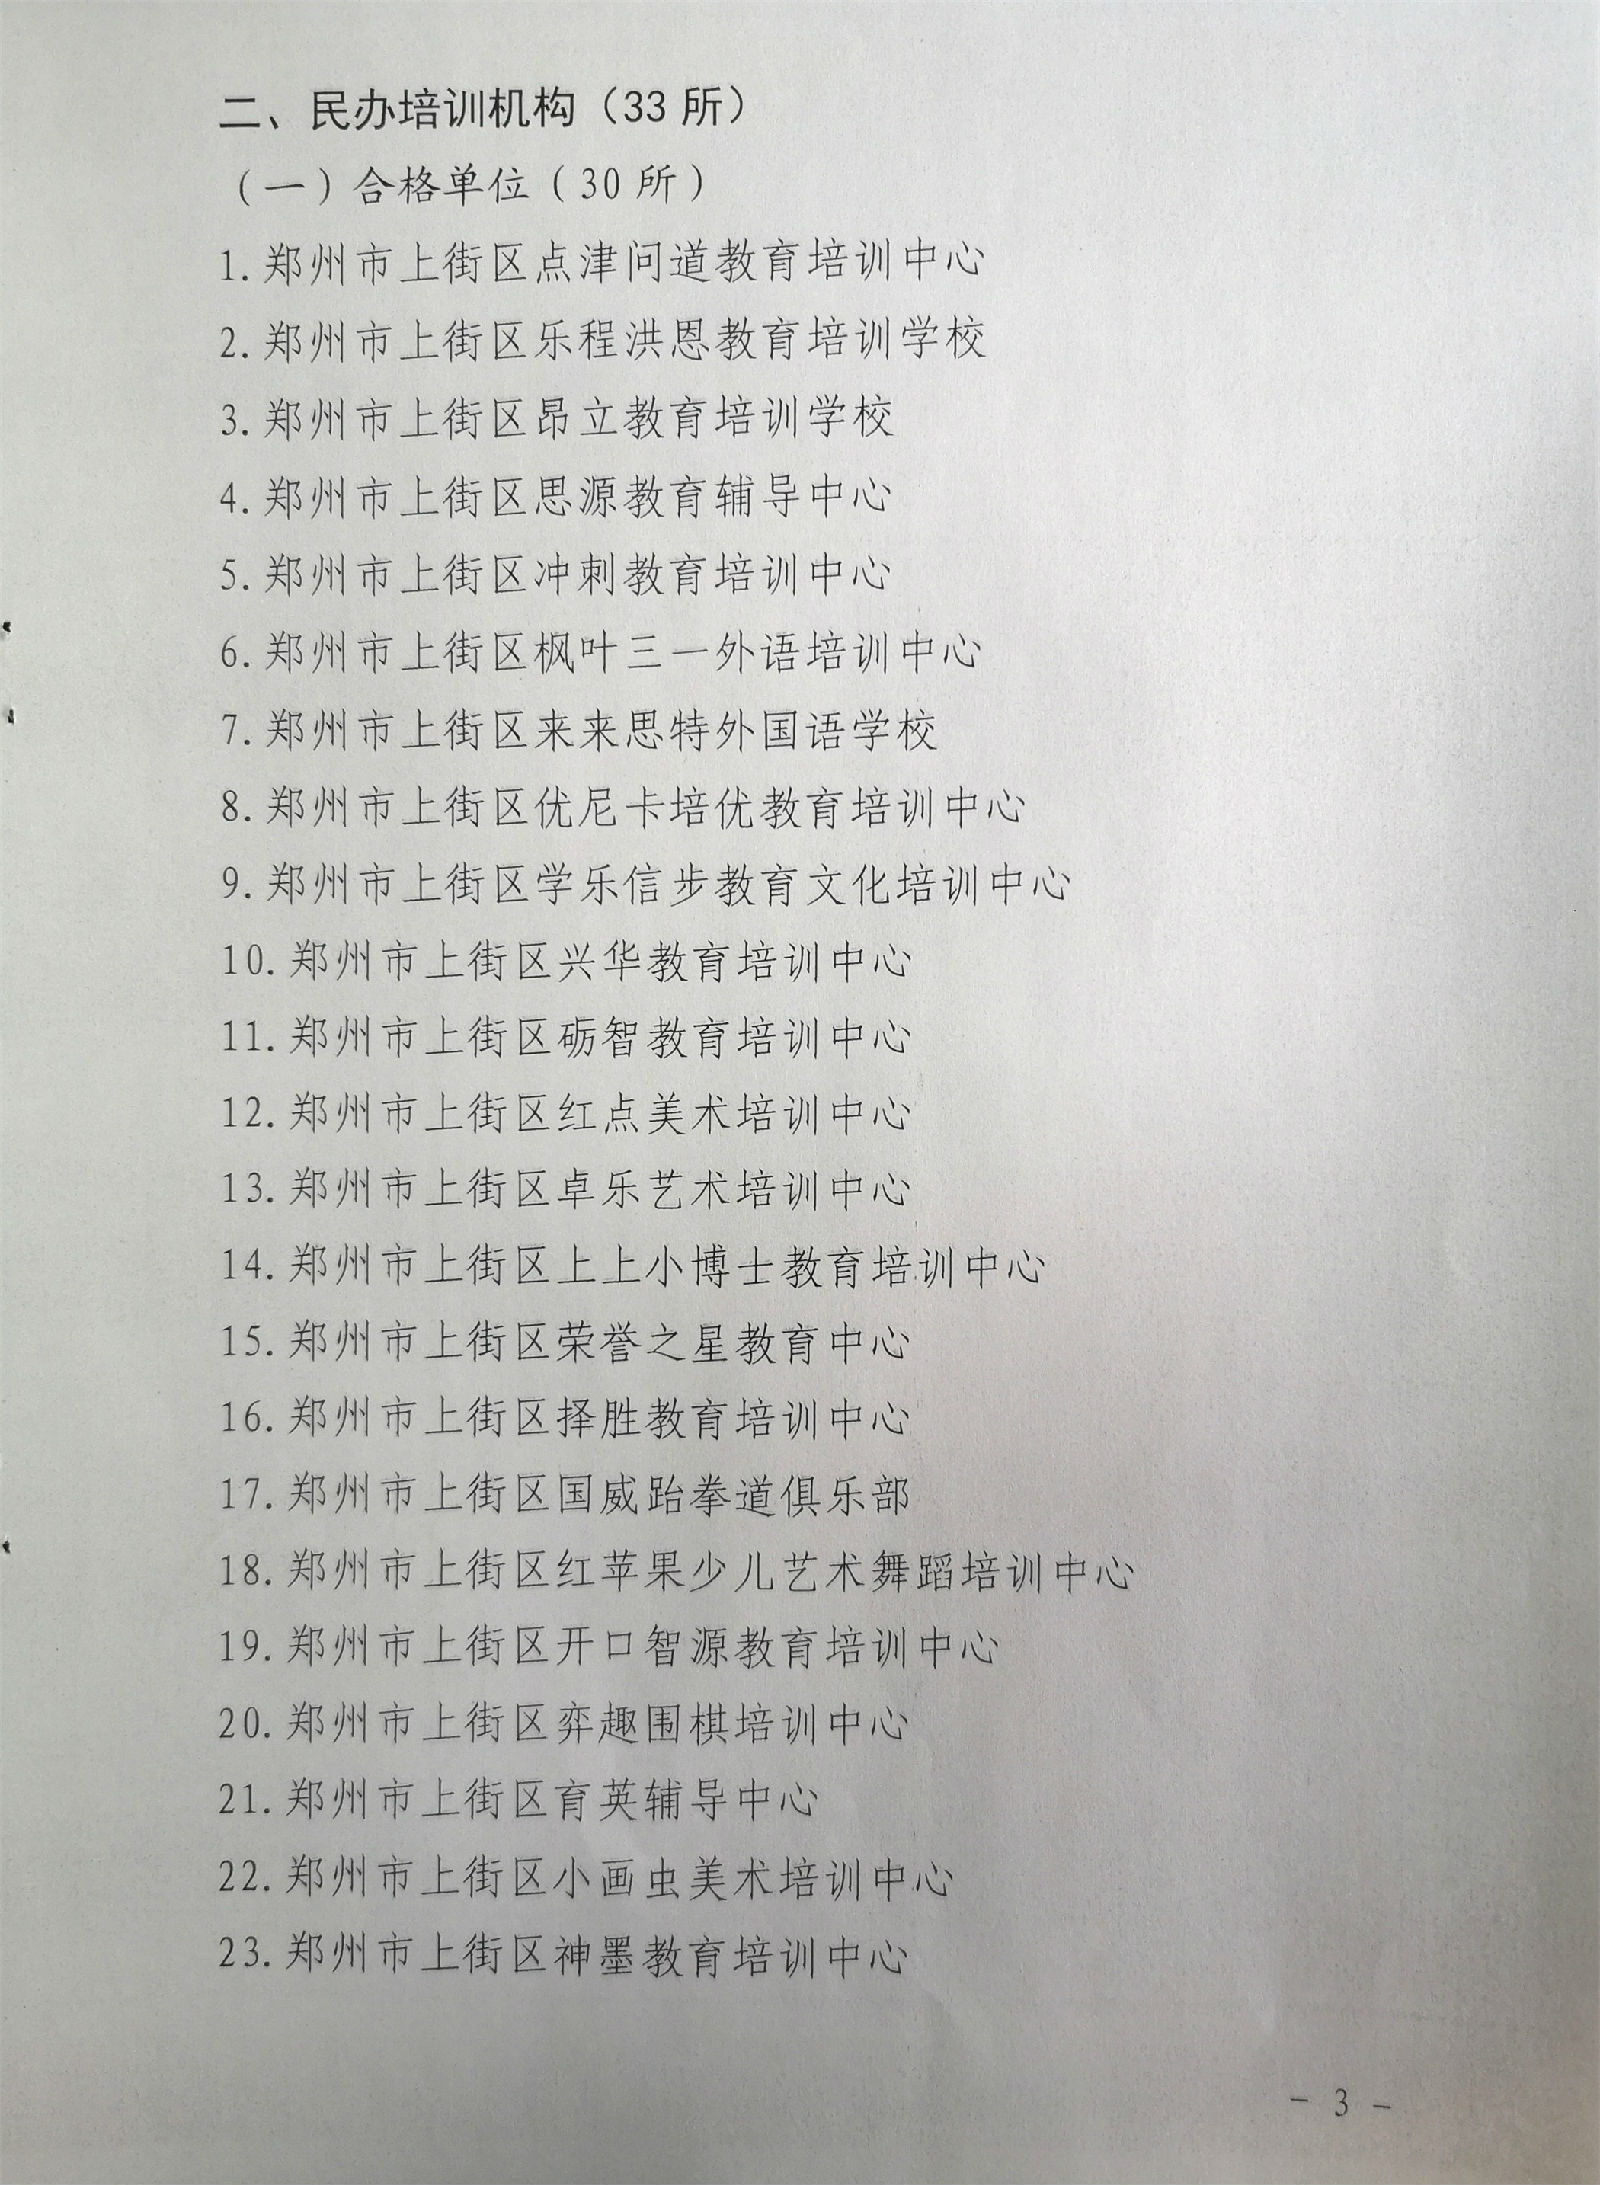 二、民办培训机构（33 所）
（一）合格单位（30 所）
1. 郑州市上街区点津问道教育培训中心
2. 郑州市上街区乐程洪恩教育培训学校
3. 郑州市上街区昂立教育培训学校
4. 郑州市上街区思源教育辅导中心
5. 郑州市上街区冲刺教育培训中心
6. 郑州市上街区枫叶三一外语培训中心
7. 郑州市上街区来来思特外国语学校
8. 郑州市上街区优尼卡培优教育培训中心
9. 郑州市上街区学乐信步教育文化培训中心
10. 郑州市上街区兴华教育培训中心
11. 郑州市上街区砺智教育培训中心
12. 郑州市上街区红点美术培训中心
13. 郑州市上街区卓乐艺术培训中心
14. 郑州市上街区上上小博士教育培训中心
15. 郑州市上街区荣誉之星教育中心
16. 郑州市上街区择胜教育培训中心
17. 郑州市上街区国威跆拳道俱乐部
18. 郑州市上街区红苹果少儿艺术舞蹈培训中心
19. 郑州市上街区开口智源教育培训中心
20. 郑州市上街区弈趣围棋培训中心
21. 郑州市上街区育英辅导中心
22. 郑州市上街区小画虫美术培训中心
23. 郑州市上街区神墨教育培训中心
- 3 -